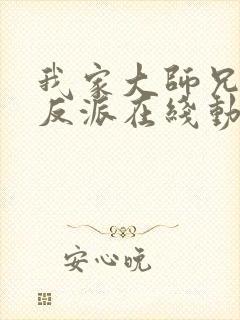 我家大師兄
反派在綫動
安心吮